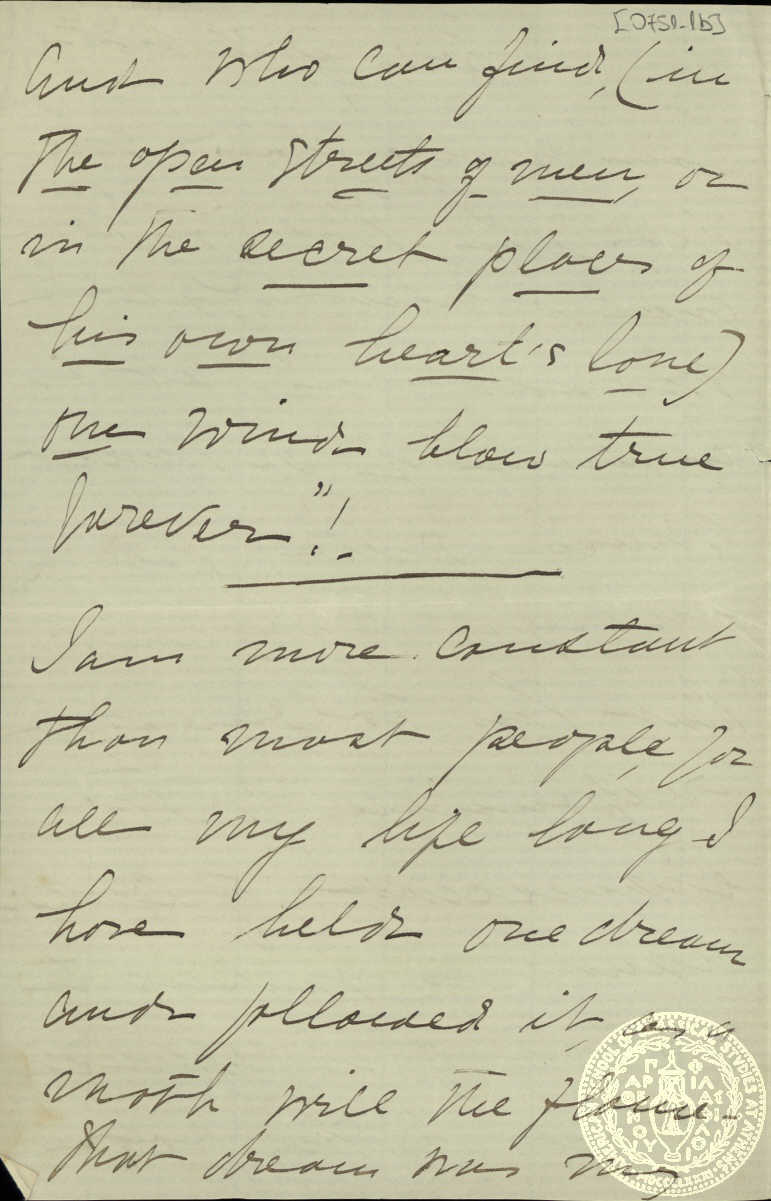 [0751-1b]
and who can find, (in
the open streets of men, or
in the secret places of
his own heart's love)
one wind blow true
forever"!
I am more constant
than most people, for
all my life long I
have held one dream
and followed it, as a
moth will the flame -
that dream was my